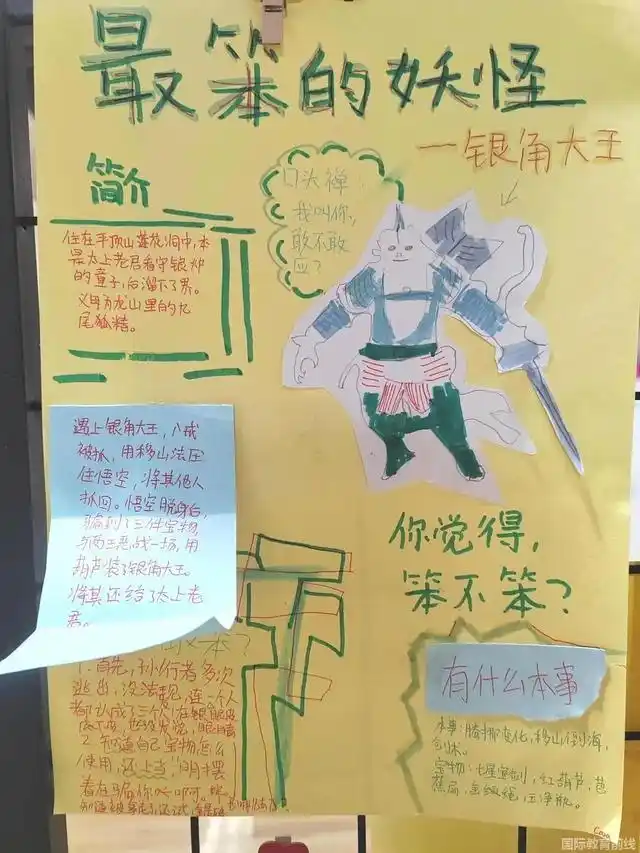 最笨的妖怪
一银角大王
简介
住在平顶山莲花洞中,本
是太上老君看守银炉
的童子,后溜下了界。
义母为龙山里的九
尾狐精。
口头禅
我叫你,
敢不敢
应?
遇上银角大王,八戒
被抓,用移山法压
住悟空,将其他人
抓回。悟空脱身后,
骗到了三件宝物,
与两王恶战一场,用
葫芦装了银角大王。
将其还给了太上老
君。
笨?
1. 首先,孙行者多次
逃出,没法现,连一个人
都认成了三个人
也没发觉,
2. 知道自己宝物怎么
使用,还上当,明摆
着在骗你
你觉得,
笨不笨?
有什么本事
本事:腾挪变化,移山倒海,
剑术。
宝物:七星宝剑,红葫芦,芭
蕉扇,金绳,玉净瓶。
国际教育前线